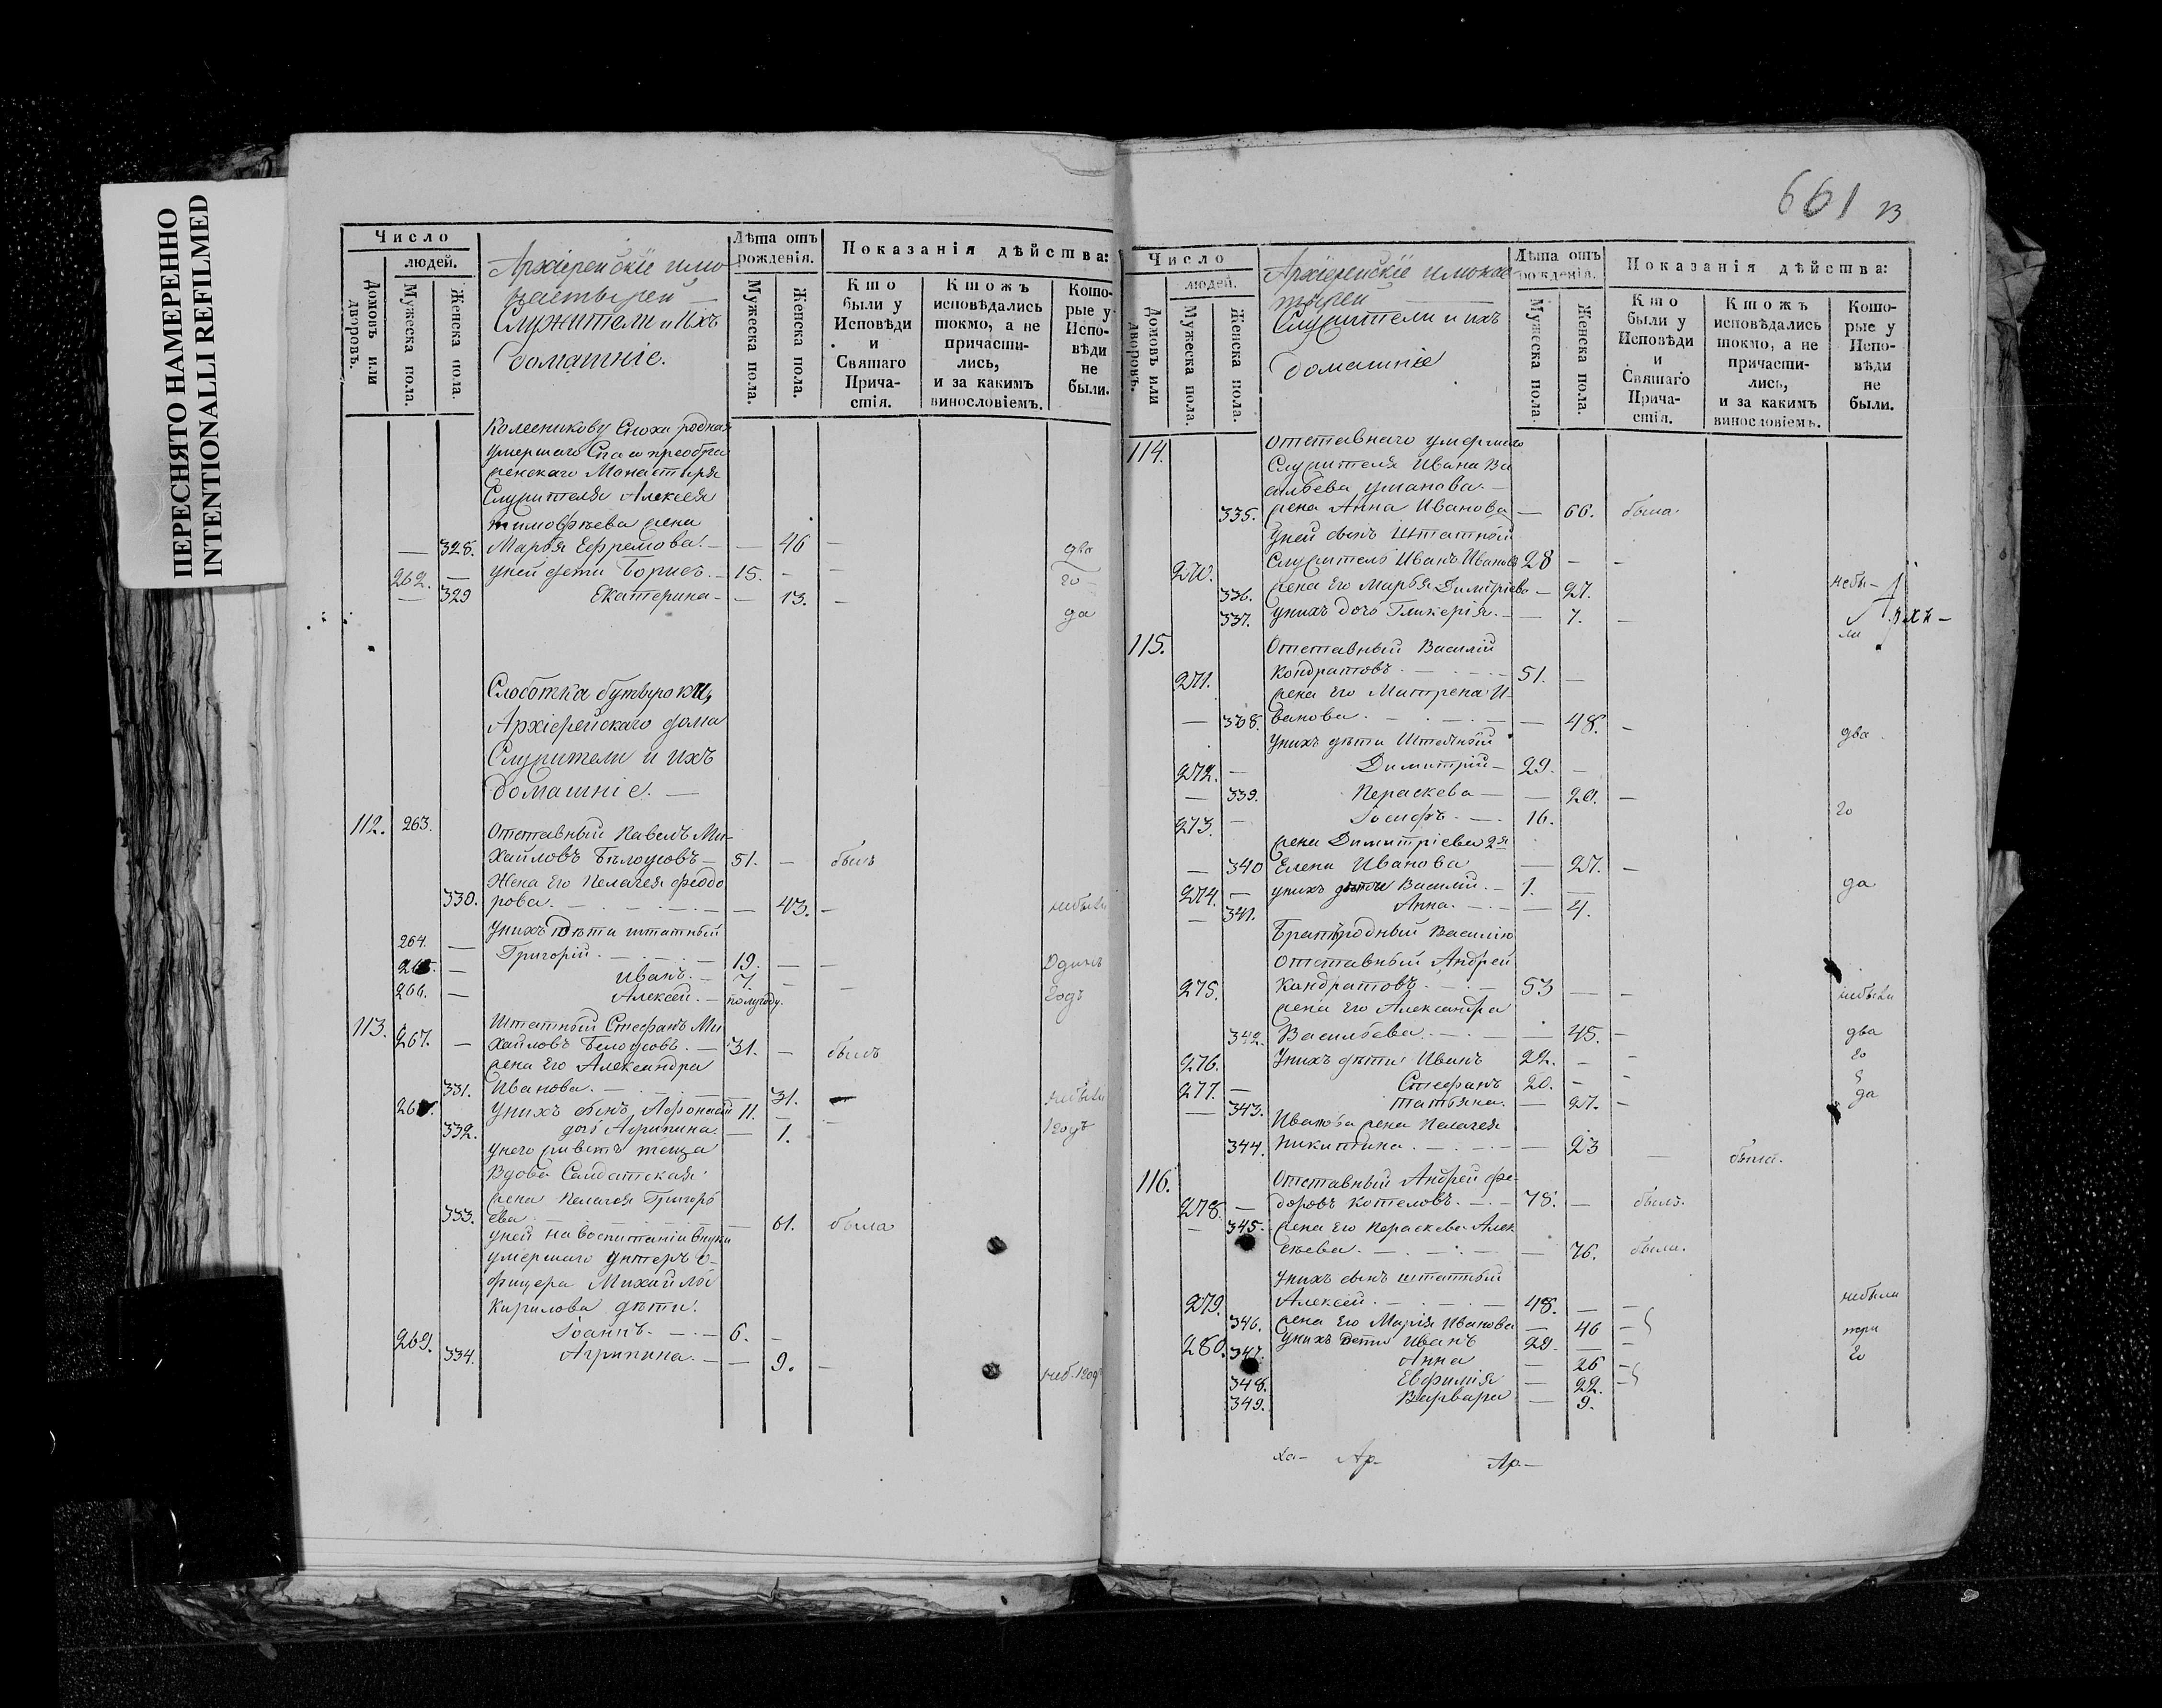 ПЕРЕСНЯТО НАМЕРЕННО
INTENTIONALLI REFILMED
Число
людей.
Домовъ или дворовъ.
Мужеска пола.
Женска пола.
Архіерейскіе и мо
настырей —
Служители и ихъ
домашніе.
Лѣта отъ рожденія.
Мужеска пола.
Женска пола.
Показанія дѣйства:
Кто были у Исповѣди и Святаго Причастія.
Ктожъ исповѣдались токмо, а не причастились, и за какимъ винословіемъ.
Которые у Исповѣди не были.
Колесникову Сноха родная
умершаго Спасопреобра
женскаго Монастыря
Служителя Алексея
Тимофѣева жена
— 328. Марья Ефремова. — — 46 — два
262. — у ней дети Борисъ. — 15. — — го
— 329 Екатерина — — 13. — да
Слоботка бутырокъ,
Архіерейскаго дома
Служители и ихъ
домашніе. —
112. 263. Отставный Павелъ Ми-
хайловъ Бѣлоусовъ — 51. — былъ
Жена его Пелагея Феодо
330. рова. — 43. — небыли
у нихъ дѣти штатный
264. — Григорій. — 19. — — Одинъ
265. — Иванъ. — 7. — —
266. — Алексей. — полугоду. — годъ
113. Штатный Стефанъ Ми
267. — хайловъ Белоусовъ. — 31. — былъ
жена его Александра
331. Иванова. — 31. — небыли
268. у нихъ сынъ Афонасей 11. —
332. дочь Агрипина. — 1. — 1 годъ
у него живетъ теща
Вдова Салдатская
жена Пелагея Григорь
333. ева — 61. была
у ней на воспитаніи внуки
умершаго Унтеръ о-
фицера Михайлы
Кирилова дѣти:
269. Іоаннъ. — 6. —
334. Агрипина. — — 9. — неб. 1 год
661
Число
людей.
Домовъ или дворовъ.
Мужеска пола.
Женска пола.
Архіерейскіе и монас
тырей —
Служители и ихъ
домашніе
Лѣта отъ рожденія.
Мужеска пола.
Женска пола.
Показанія дѣйства:
Кто были у Исповѣди и Святаго Причастія.
Ктожъ исповѣдались токмо, а не причастились, и за какимъ винословіемъ.
Которые у Исповѣди не были.
114. Отставнаго умершаго
Служителя Ивана Ва
сильева Ушакова. —
335. жена Анна Иванова — 66. была.
у ней сынъ Штатный
270. Служитель Иванъ Ивановъ 28 — —
336. жена его Марья Димитріева — 27. небы —
337. у нихъ дочь Гликерія. — — 7. — ли
115. Отставный Василій
271. Кондратовъ. — 51. —
жена его Матрена И-
— 338. ванова. — — 48. — два
у нихъ дѣти Штатный
272. — Димитрій — 29. —
— 339. Пераскева — — 20. —
273. — Іосифъ. — 16. го
жена Димитріева 2я
— 340 Елена Иванова — 27. —
274. — у нихъ дѣти Василий. — 1. — да
— 341. Анна. — — 4.
Брат родный Василію
Отставный Андрей
275. Кандратовъ. — 53 — — небыли
жена его Александра
342. Васильева. — — 45. — два
276. У нихъ дѣти: Иванъ 22. — — го
277. — Стефанъ 20. — —
— 343. Татьяна. — 27. — да
Иванова жена Пелагея
344. Никитина. — — 23 — была.
116. Отставный Андрей Фе-
278. — доровъ Котеловъ. — 78. — былъ.
— 345. жена его Пераскева Алек
сѣева. — — 76. была.
У нихъ сынъ штатный
279. Алексей. — 48. — — небыли
346. жена его Марія Иванова — 46 — три
280. У нихъ дети Иванъ 29. — — го
347. Анна — 26 —
348. Евфимія — 22. —
349. Варвара — 9.
ха- Ар- Ар-